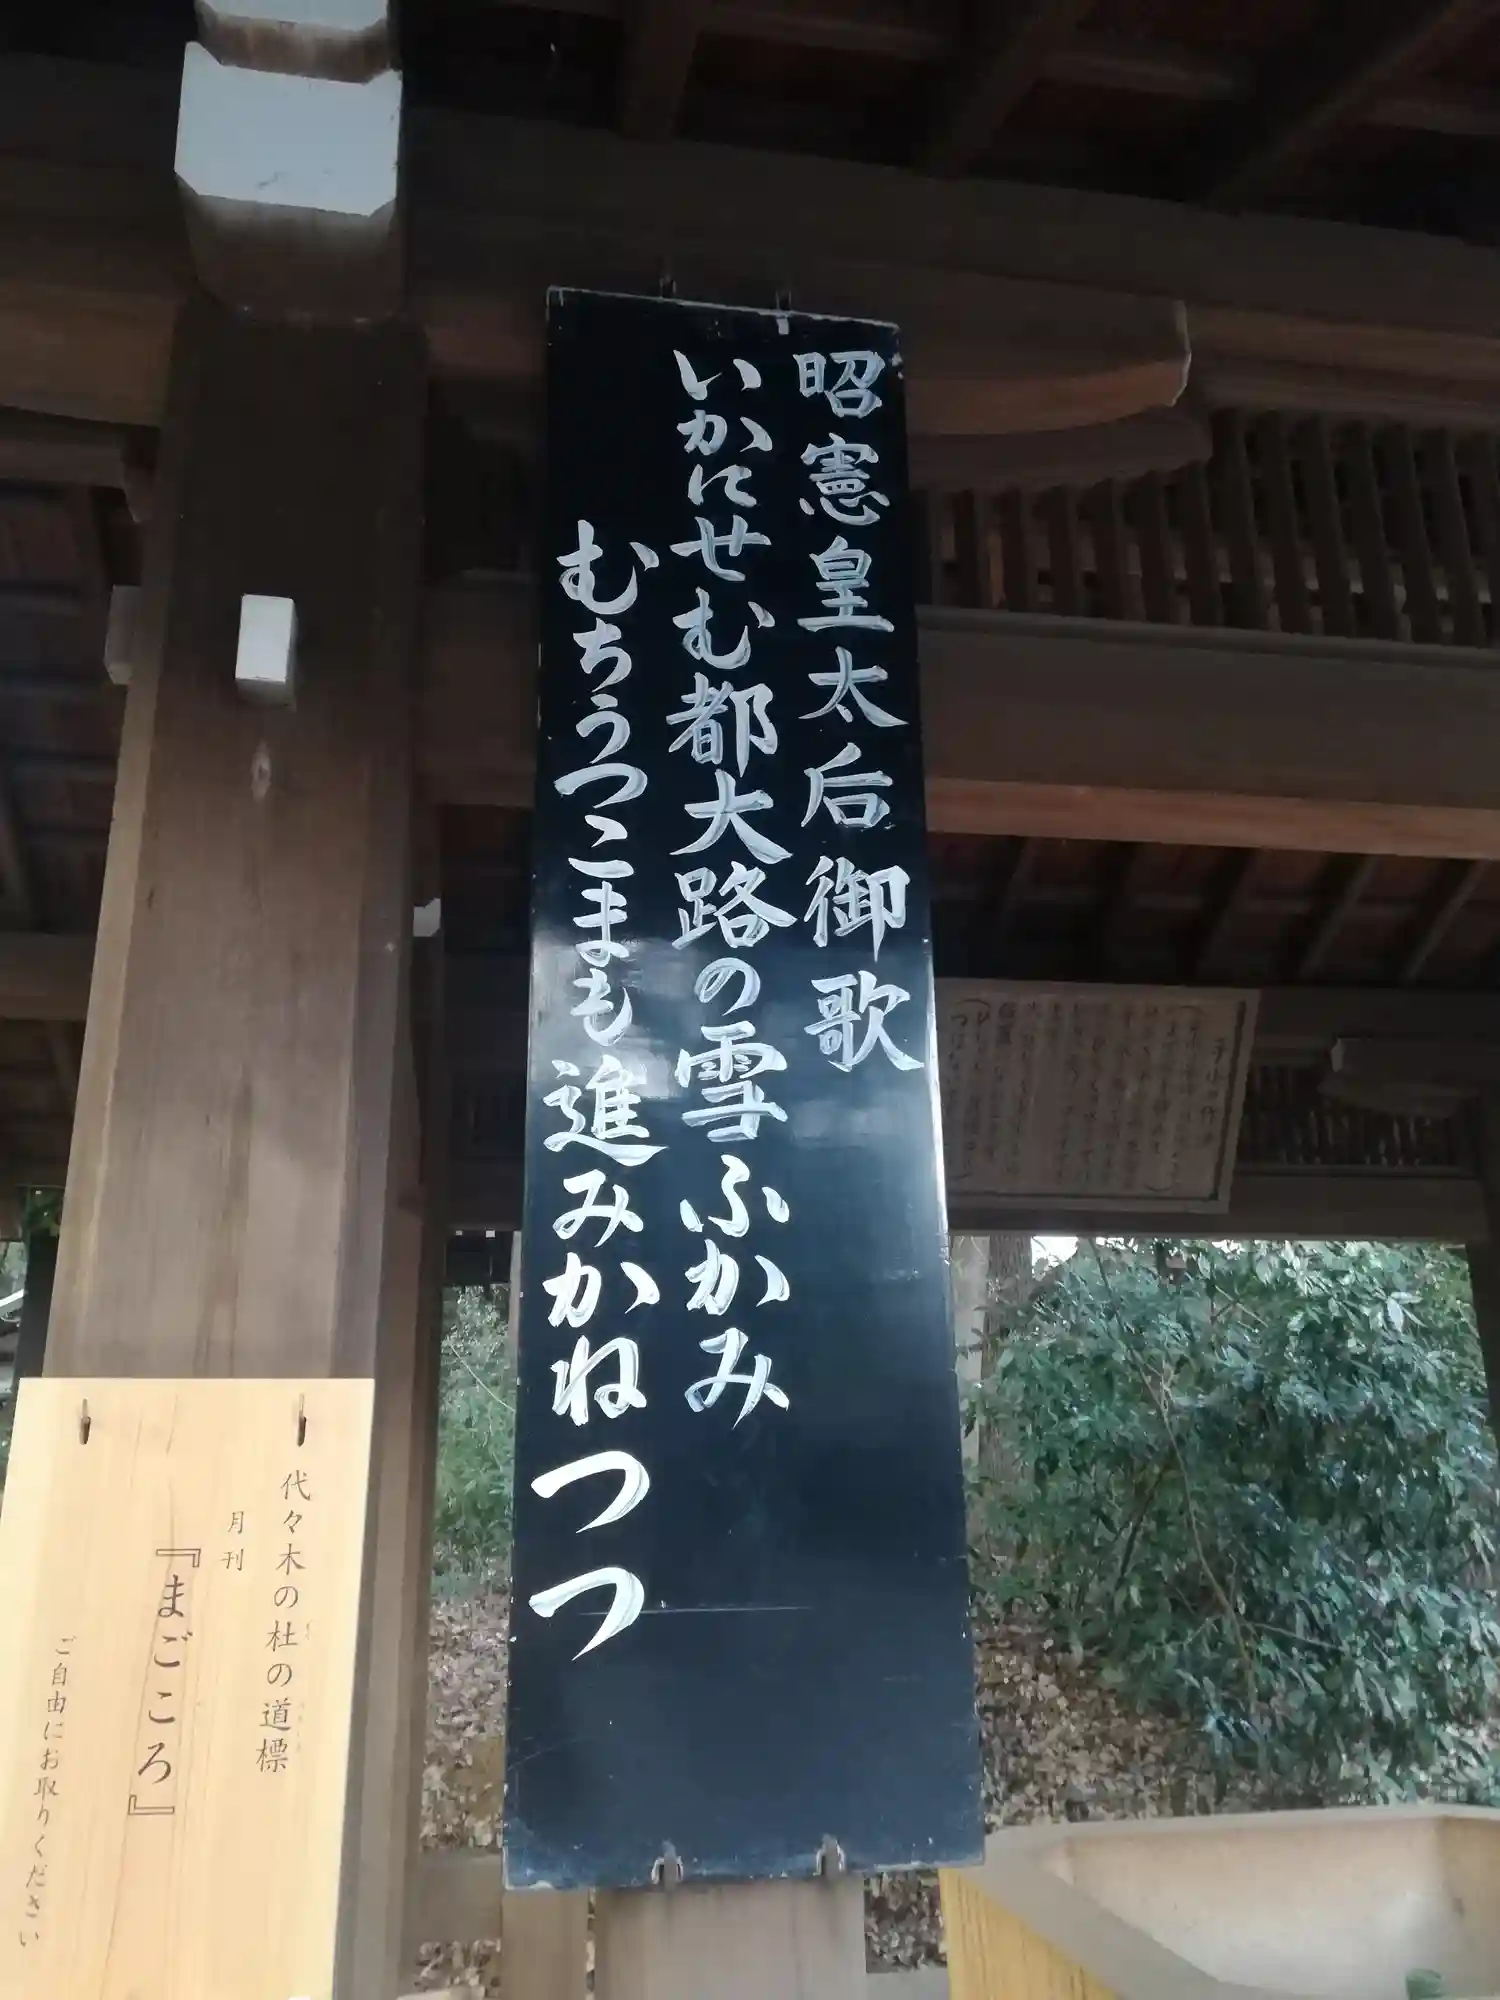 昭憲皇太后御歌
いかにせむ都大路の雪ふかみ
むちうつこまも進みかねつつ
代々木の杜の道標
月刊
『まごころ』
ご自由にお取りください